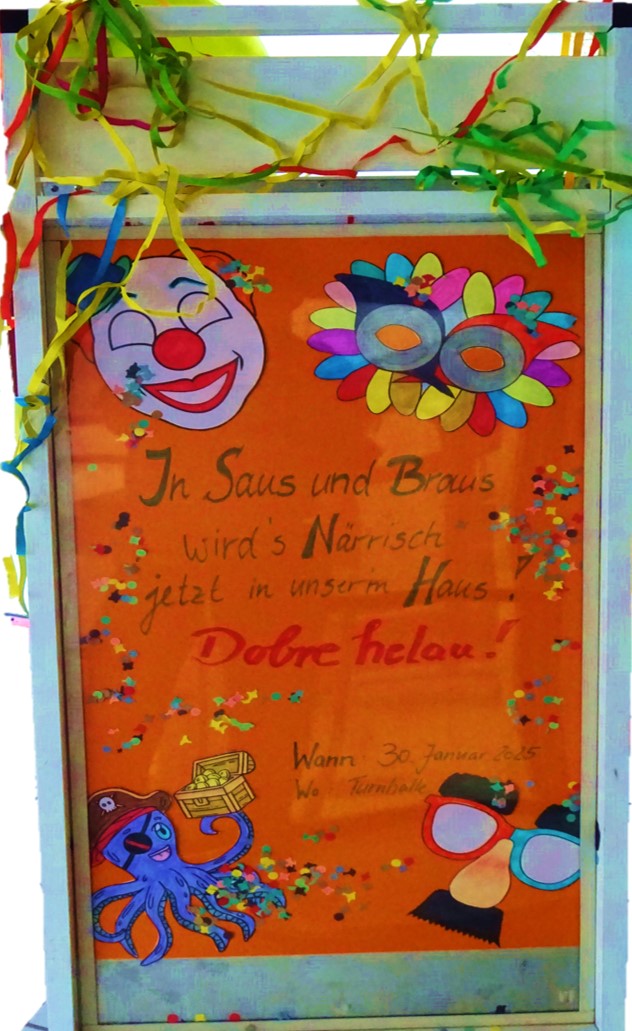 In Saus und Braus
wird's Närrisch
jetzt in unserm Haus!
Dobre helau!
Wann 30. Januar 2025
Wo: Turnhalle